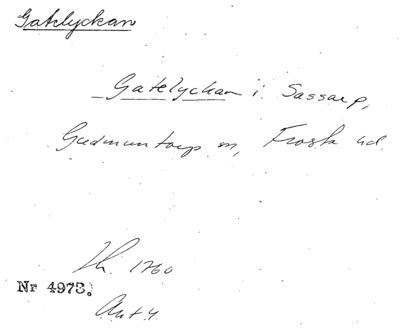 Gatelyckan
Gatelyckan i Sassarp,
Gudmuntorp sn, Frosta hd.
Lh. 1760
Nr 4973.
Akt 4.